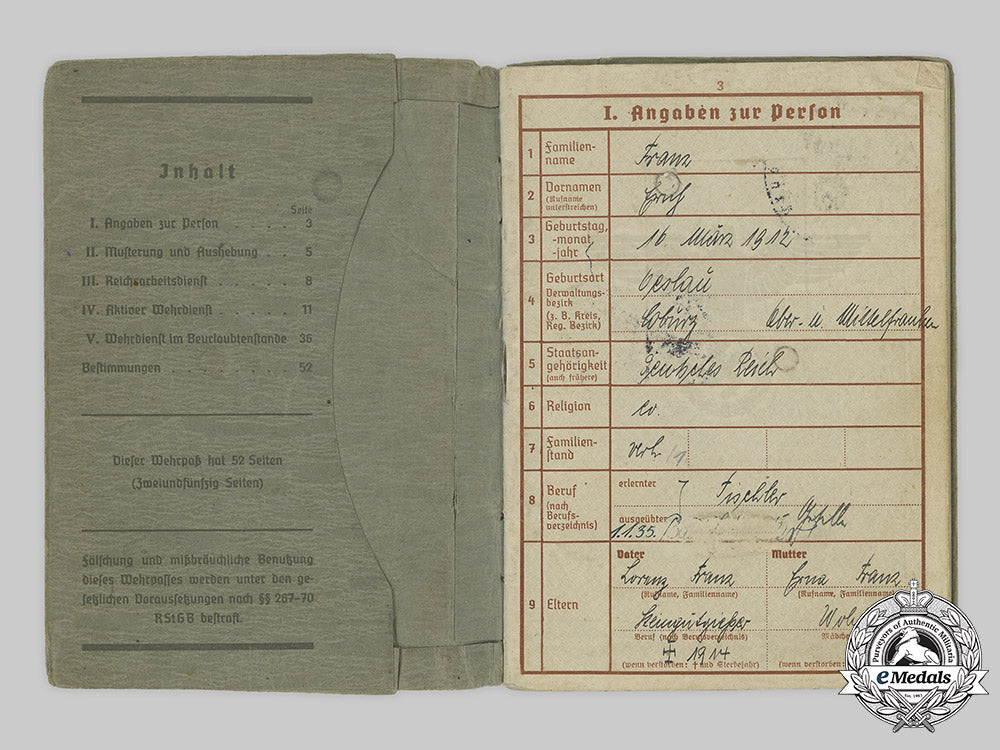 Inhalt
Seite
I. Angaben zur Person . . . . . 3
II. Musterung und Aushebung . . . 5
III. Reichsarbeitsdienst . . . . . 8
IV. Aktiver Wehrdienst . . . . . 11
V. Wehrdienst im Beurlaubtenstande 36
Bestimmungen . . . . . . . . 52
Dieser Wehrpaß hat 52 Seiten
(Zweiundfünfzig Seiten)
Fälschung und mißbräuchliche Benutzung
dieses Wehrpasses werden unter den ge-
setzlichen Voraussetzungen nach §§ 267-70
RStGB bestraft.
3
I. Angaben zur Person
1 Familien-
name
Franz
2 Vornamen
(Rufname
unterstreichen)
Erich
3 Geburtstag,
-monat,
-jahr
16. März 1912
4 Geburtsort
Verwaltungs-
bezirk
(z. B. Kreis,
Reg. Bezirk)
Oeslau
Coburg Ober- u. Mittelfranken
5 Staatsan-
gehörigkeit
(auch frühere)
Deutsches Reich
6 Religion
ev.
7 Familien-
stand
verh.
8 Beruf
(nach
Berufs-
verzeichnis)
erlernter
Tischler
ausgeübter
1.1.35.
Geselle
9 Eltern
Vater
Lorenz Franz
(Rufname, Familienname)
Steingutgießer
Beruf (nach Berufsverzeichnis)
† 1914
(wenn verstorben: † und Sterbejahr)
Mutter
Erna Franz
(Rufname, Familienname)
(wenn verstorben:
Purveyors of Authentic Militaria
eMedals
Est. 1967